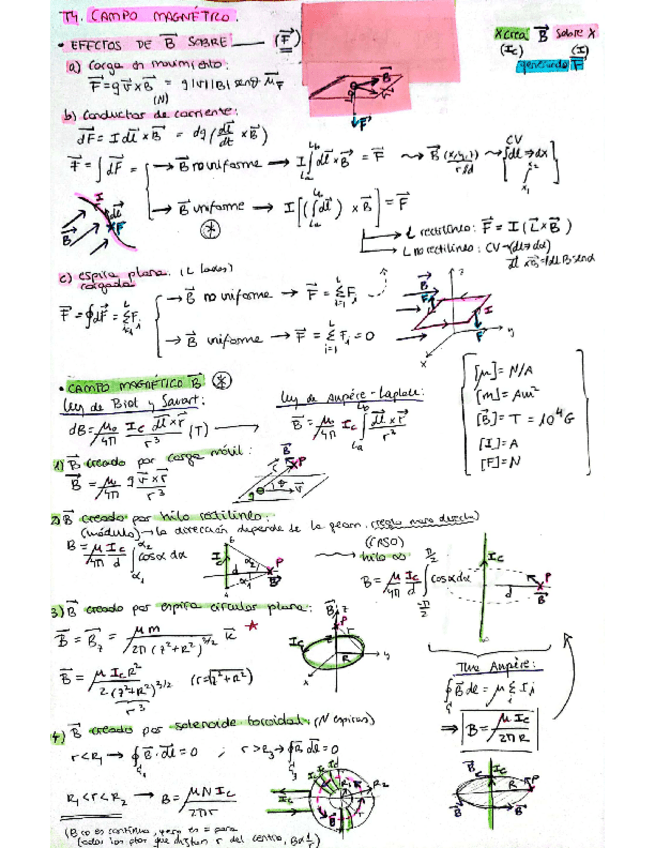 T4. CAMPO MAGNÉTICO.
• EFECTOS DE B⃗ SOBRE ___ (F⃗)
X crea B⃗ sobre X
(Ic) (I)
generando F⃗
a) Carga en movimiento:
F⃗ = q v⃗ × B⃗ = q |v| |B| senθ μ⃗_F
(N)
b) Conductor de corriente:
dF⃗ = I dl⃗ × B⃗ = dq (dl⃗/dt × B⃗)
F⃗ = ∫ dF⃗ =
→ B⃗ no uniforme → I ∫_La^Lb dl⃗ × B⃗ = F⃗ ⇝ B⃗ (x,y,z) ⇝ CV ∫dl ⇒ dx ∫_x1^x2
→ B⃗ uniforme → I [(∫_La^Lb dl⃗) × B⃗] = F⃗
I dl⃗ F⃗ B⃗
→ L rectilíneo: F⃗ = I (L⃗ × B⃗)
→ L no rectilíneo: CV → (dl ⇒ dα)
c) espira plana: (L lados)
cargada
F⃗ = ∮ dF⃗ = Σ_{i=1}^L F_i
→ B⃗ no uniforme → F⃗ = Σ_{i=1}^L F_i
→ B⃗ uniforme → F⃗ = Σ_{i=1}^L F_i = 0
B⃗ F⃗ z I y x F⃗
• CAMPO MAGNÉTICO B⃗ (*)
Ley de Biot y Savart:
Ley de Ampère-Laplace:
dB⃗ = μ₀/4π Ic dl⃗ × r⃗ / r³ (T) →
B⃗ = μ₀/4π Ic ∫_La^Lb dl⃗ × r⃗ / r³
[μ] = N/A
[m] = Am²
[B⃗] = T = 10⁴G
[I] = A
[F] = N
1) B⃗ creado por carga móvil:
B⃗ = μ/4π q v⃗ × r⃗ / r³
2) B⃗ creado por hilo rectilíneo:
(módulo) → la dirección depende de la geom. (regla mano derecha)
B = μ/4π Ic/d ∫_α1^α2 cosα dα
(CASO)
hilo ∞
B = μ/4π Ic/d ∫_π/2^π/2 cosα dα
Ic d P B⃗
3) B⃗ creado por espira circular plana:
B⃗ = B⃗z = μ m / 2π (z²+R²)^3/2 k⃗ ★
B⃗ = μ Ic R² / 2 (z²+R²)^3/2 (r=√z²+R²)
r³
Tma Ampère:
∮ B⃗ dl = μ Σ Ii
⇒ B = μ Ic / 2πR
4) B⃗ creado por solenoide toroidal: (N espiras)
r<R₁ → ∮ B⃗·dl⃗ = 0 ; r>R₂ → ∮ B⃗ dl⃗ = 0
R₁<r<R₂ → B = μ N Ic / 2πr
(B no es continuo, pero es = para
todos los ptos que distan r del centro, Bα 1/r)